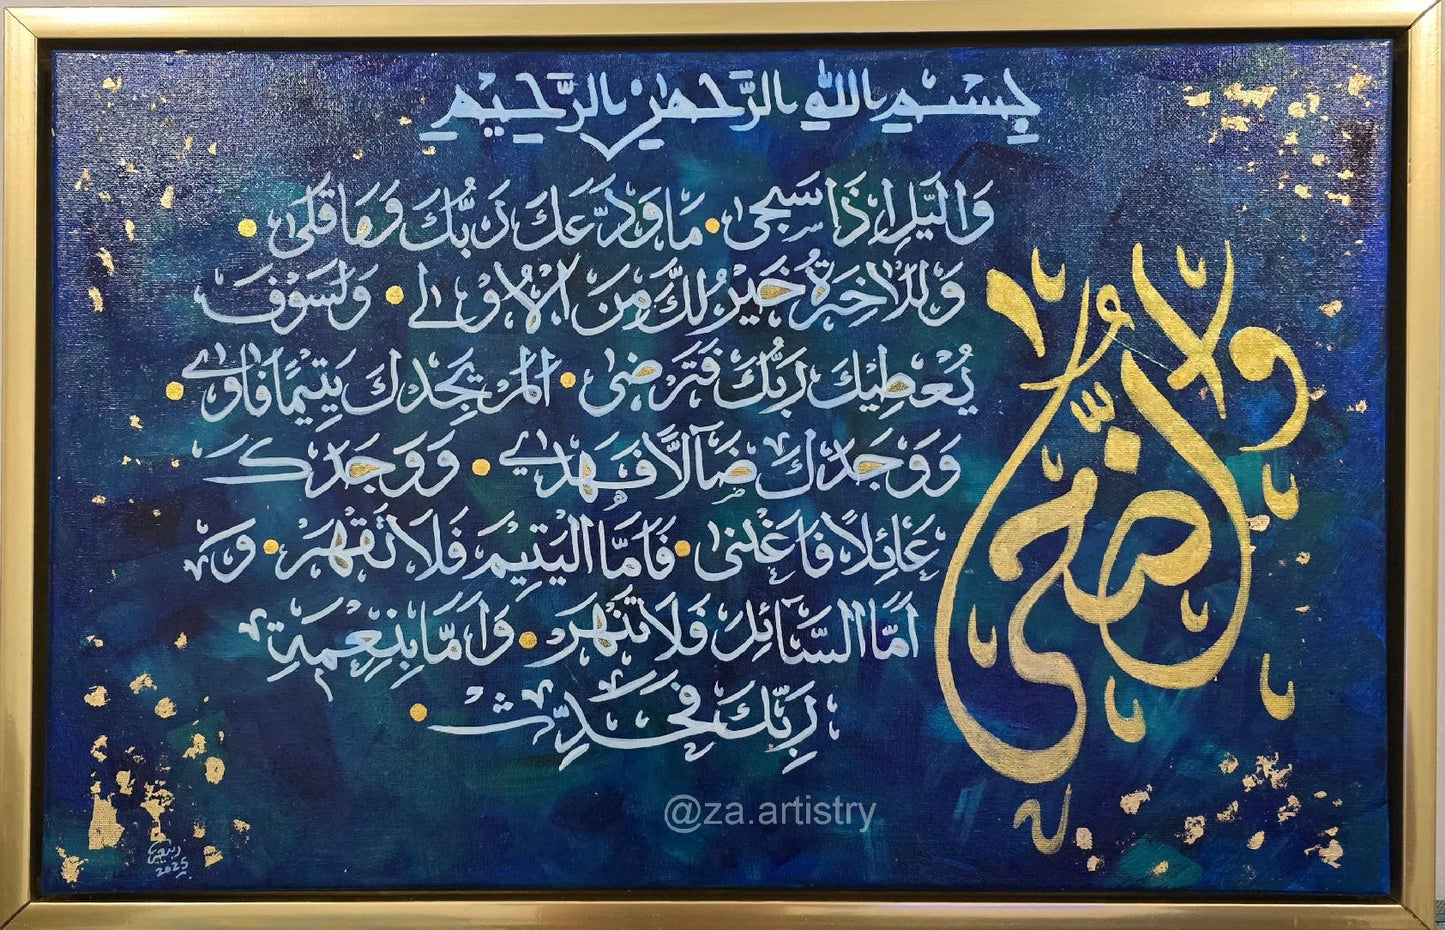 بِسْمِ اللهِ الرَّحْمٰنِ الرَّحِيْمِ
وَالضُّحٰى
وَالَّيْلِ اِذَا سَجٰى مَا وَدَّعَكَ رَبُّكَ وَمَا قَلٰى
وَلَلْاٰخِرَةُ خَيْرٌ لَّكَ مِنَ الْاُوْلٰى وَلَسَوْفَ
يُعْطِيْكَ رَبُّكَ فَتَرْضٰى اَلَمْ يَجِدْكَ يَتِيْمًا فَاٰوٰى
وَوَجَدَكَ ضَآلًّا فَهَدٰى وَوَجَدَكَ
عَآئِلًا فَاَغْنٰى فَاَمَّا الْيَتِيْمَ فَلَا تَقْهَرْ وَ
اَمَّا السَّآئِلَ فَلَا تَنْهَرْ وَاَمَّا بِنِعْمَةِ
رَبِّكَ فَحَدِّثْ
@za.artistry
2025